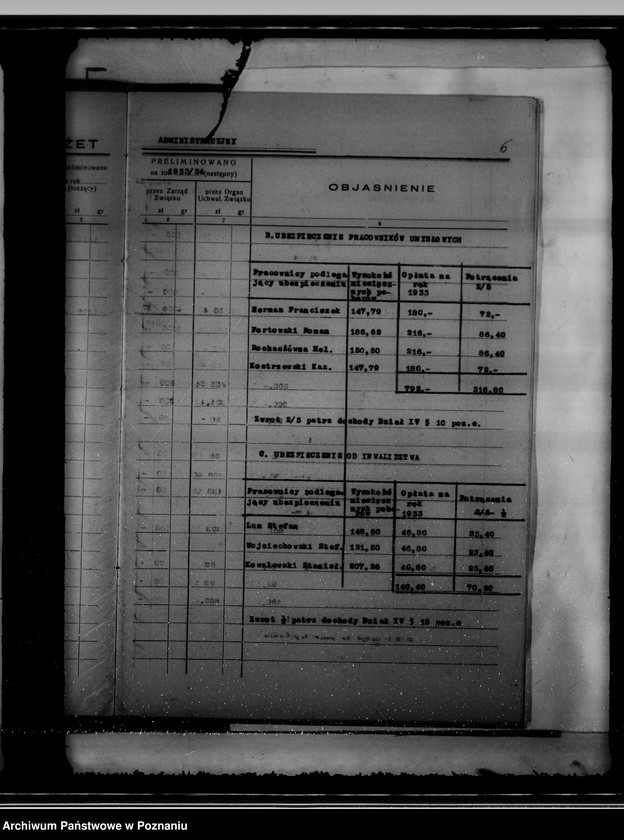 ŻET
ADMINISTRACYJNY
6
PRELIMINOWANO
na rok 1933/34 (następcy)
(bieżący)
przez Zarząd Związku
przez Organ Uchwal. Związku
OBJAŚNIENIE
zł gr zł gr zł gr
5 6 7 8
B. UBEZPIECZENIE PRACOWNIKÓW UMYSŁOWYCH
Pracownicy podlegający ubezpieczeniu Wysokość miesięcznych poborów Opłata na rok 1933 Potrącenia 2/5
Herman Franciszek 147,79 180,- 72,-
Portowski Roman 186,62 216,- 86,40
Hel. 150,50 216,- 86,40
Kostrzewski Kaz. 147,79 180,- 72,-
792,- 316,80
Zwrot 2/5 patrz dochody Dział IV § 10 poz.c.
C. UBEZPIECZENIE OD INWALIDZTWA
Pracownicy podlegający ubezpieczeniu Wysokość miesięcznych poborów Opłata na rok 1933 Potrącenia
Stefan 148,50 46,80 23,40
Wojciechowski Stef. 121,50 46,80 23,40
Kowalewski Stanisł. 207,26 46,80 23,40
140,40 70,20
Zwrot ½ patrz dochody Dział IV § 10 poz.c
Archiwum Państwowe w Poznaniu